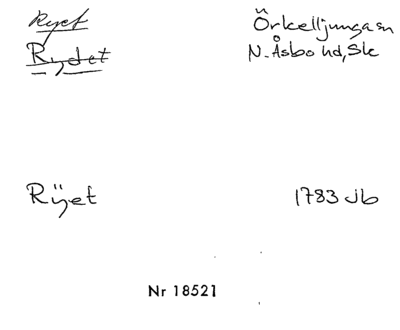 Ryet Örkelljunga sn
Rydet N. Åsbo hd, Sk
Rÿet 1783 Jb
Nr 18521